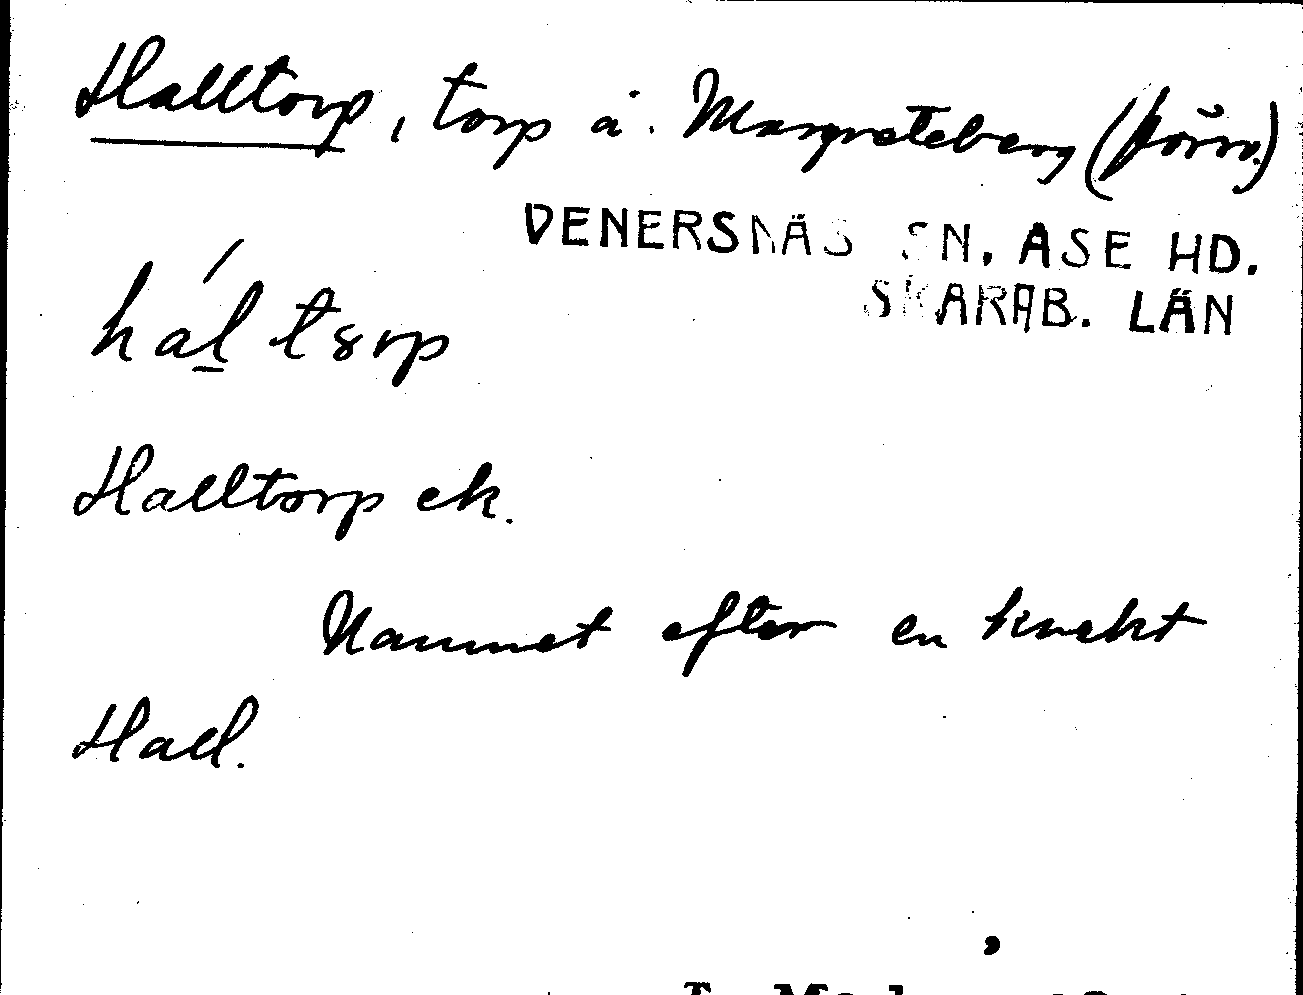 Halltorp, torp å. Margreteberg (förv.)
VENERSNÄS SN. ÅSE HD.
SKARAB. LÄN
hál tsrp
Halltorp ek.
Namnet efter en knekt
Hall.